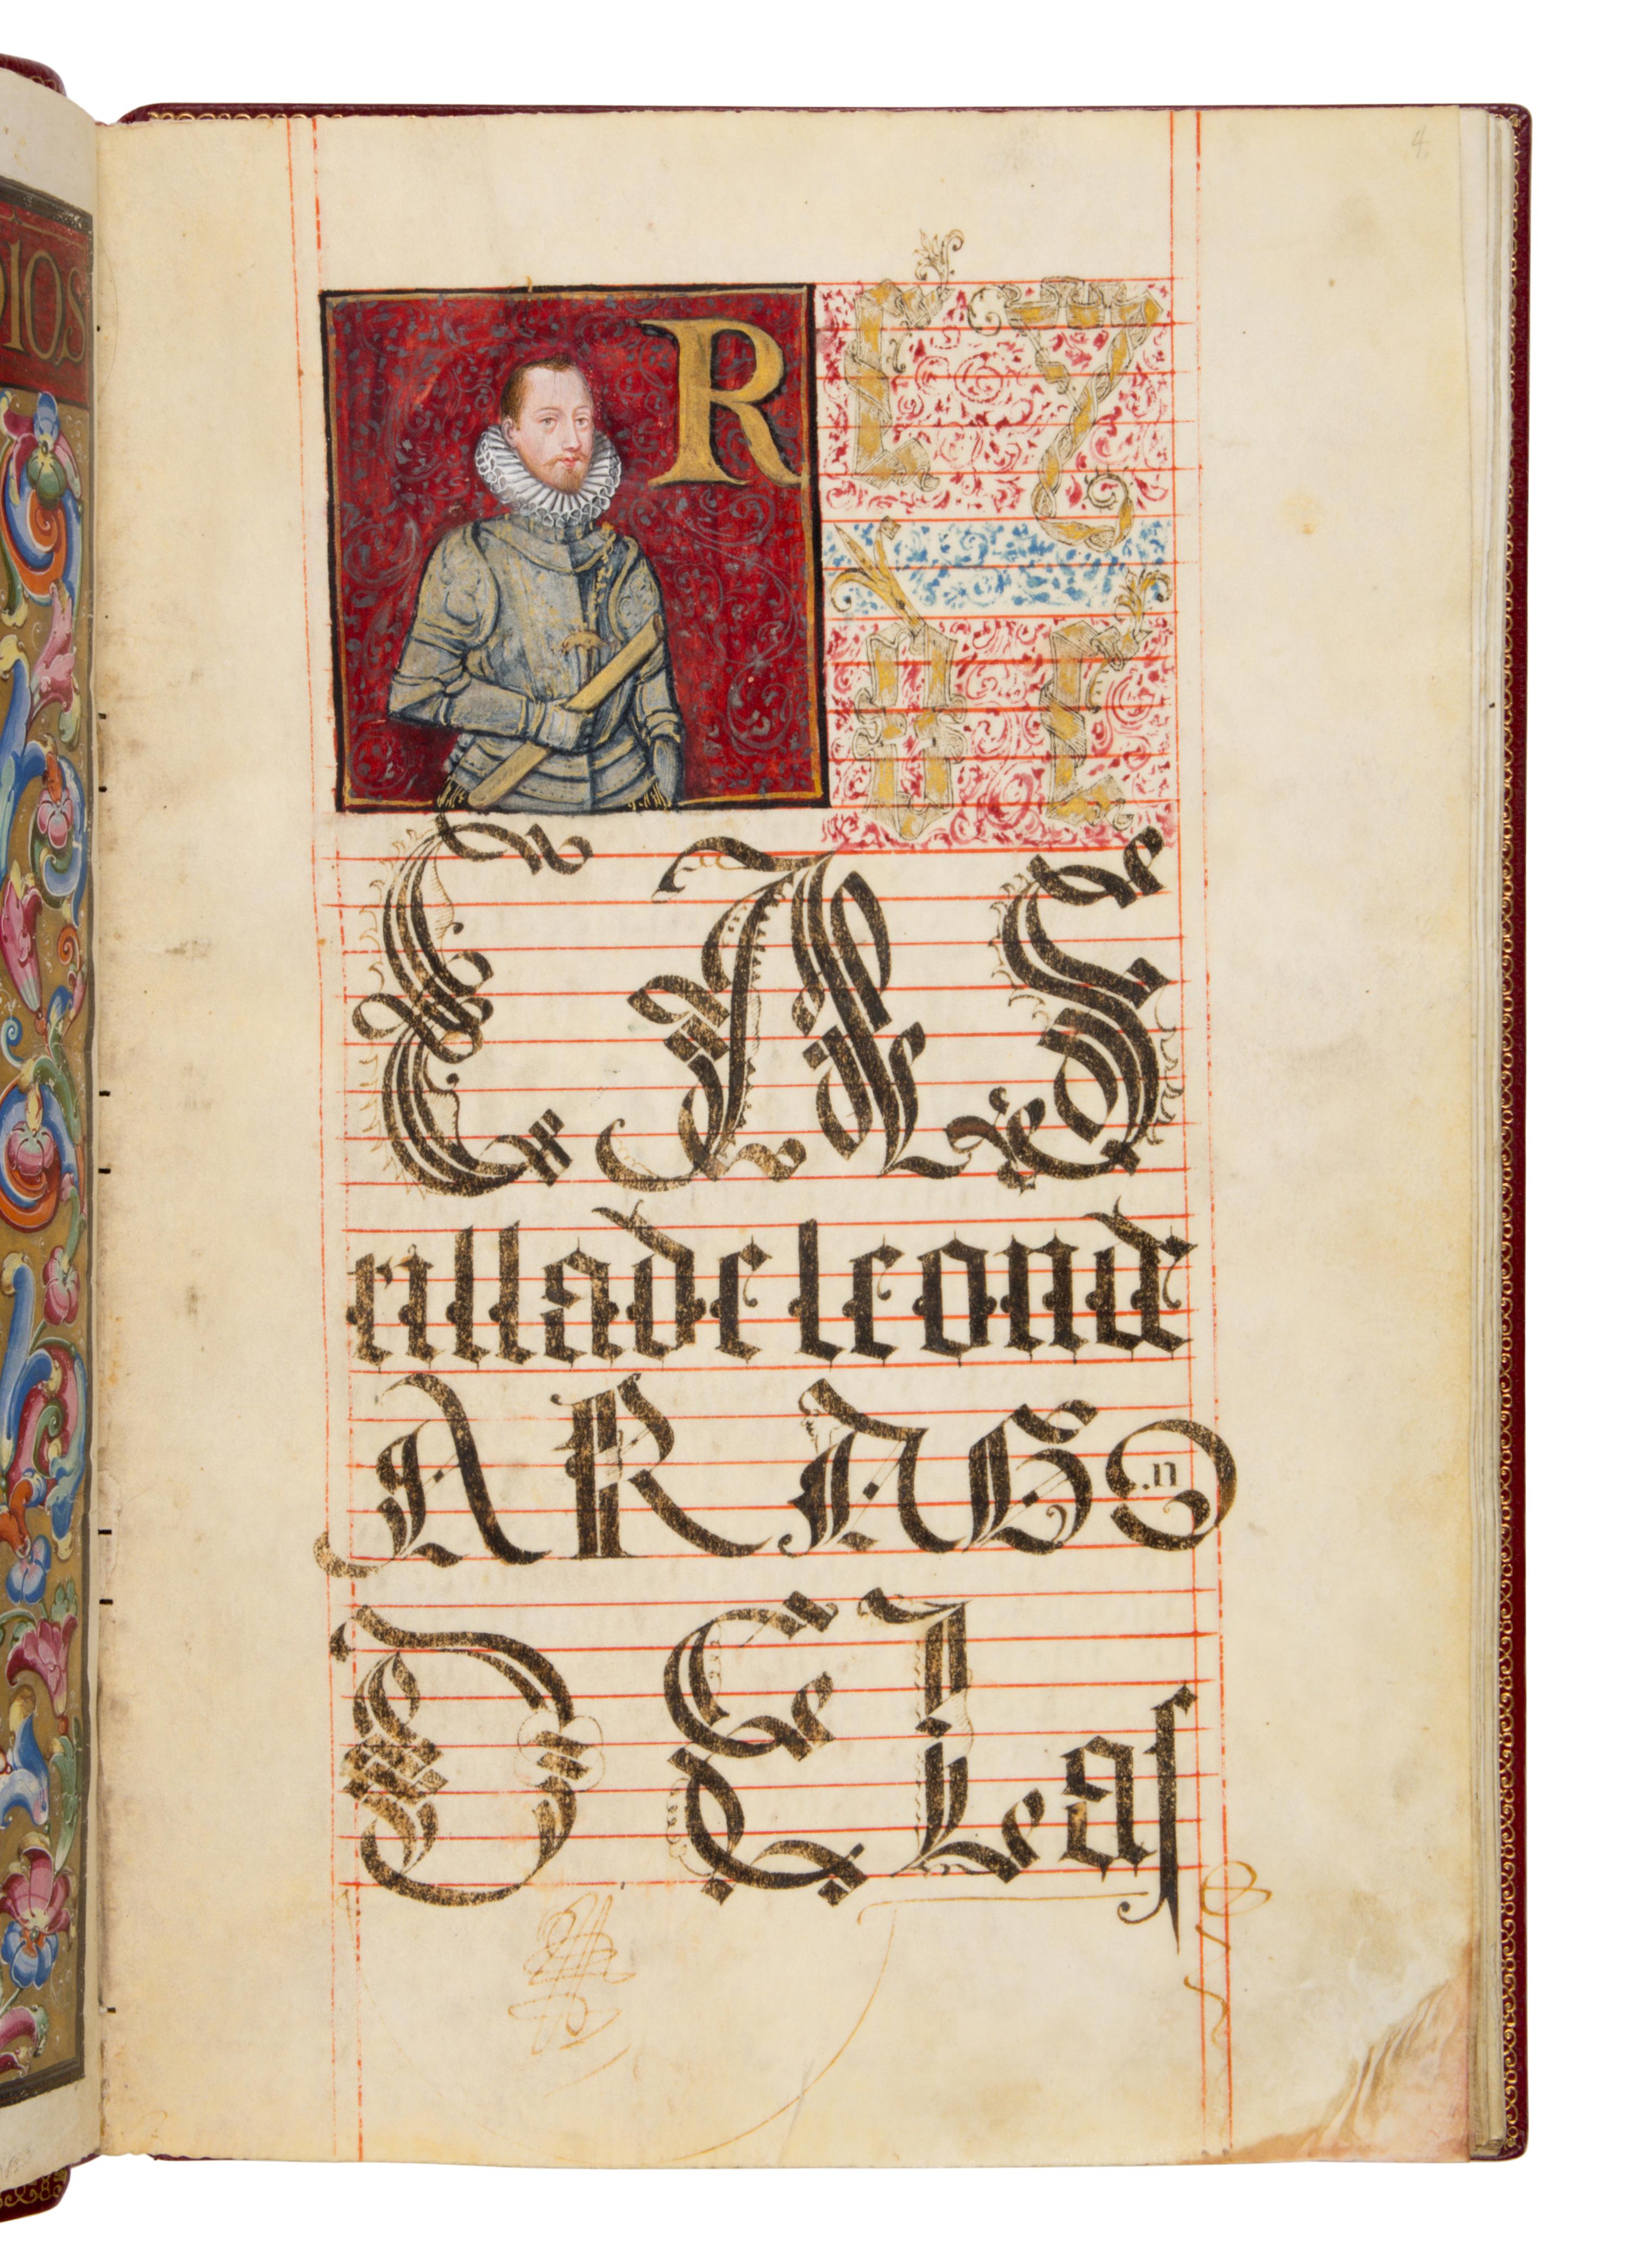 DIOS
4.
REY
DE
CAS
tilladeleonde
ARAGO.n
DE Las